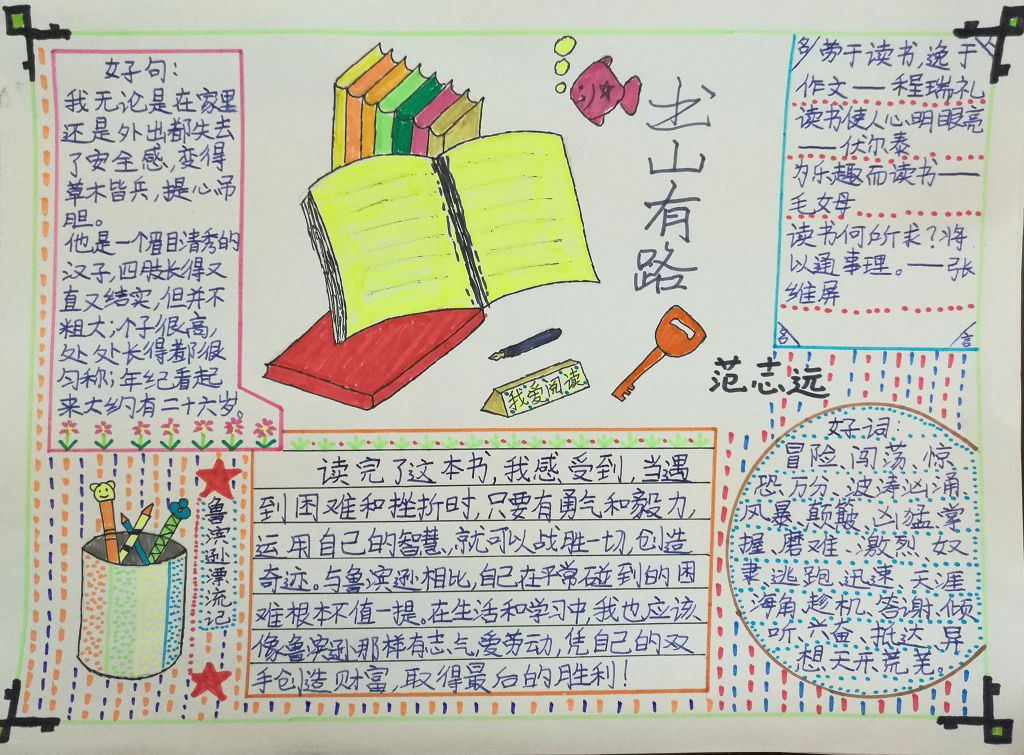 好句：
我无论是在家里
还是外出都失去
了安全感，变得
草木皆兵，提心吊
胆。
他是一个眉目清秀的
汉子，四肢长得又
直又结实，但并不
粗大；个子很高，
处处长得都很
匀称；年纪看起
来大约有二十六岁。
书山有路
范志远
我爱阅读
多劳于读书，逸于
作文——程瑞礼
读书使人心明眼亮
——伏尔泰
为乐趣而读书——
毛姆
读书何所求？将
以通事理。——张
维屏
鲁滨逊漂流记
读完了这本书，我感受到，当遇
到困难和挫折时，只要有勇气和毅力，
运用自己的智慧，就可以战胜一切，创造
奇迹。与鲁滨逊相比，自己在平常碰到的困
难根本不值一提。在生活和学习中，我也应该
像鲁滨逊那样有志气，爱劳动，凭自己的双
手创造财富，取得最后的胜利！
好词：
冒险、闯荡、惊
恐、万分、波涛汹涌、
风暴、颠簸、凶猛、掌
握、磨难、激烈、奴
隶、逃跑、迅速、天涯
海角、趁机、答谢、倾
听、六亩、抵达、异
想天开、荒芜。